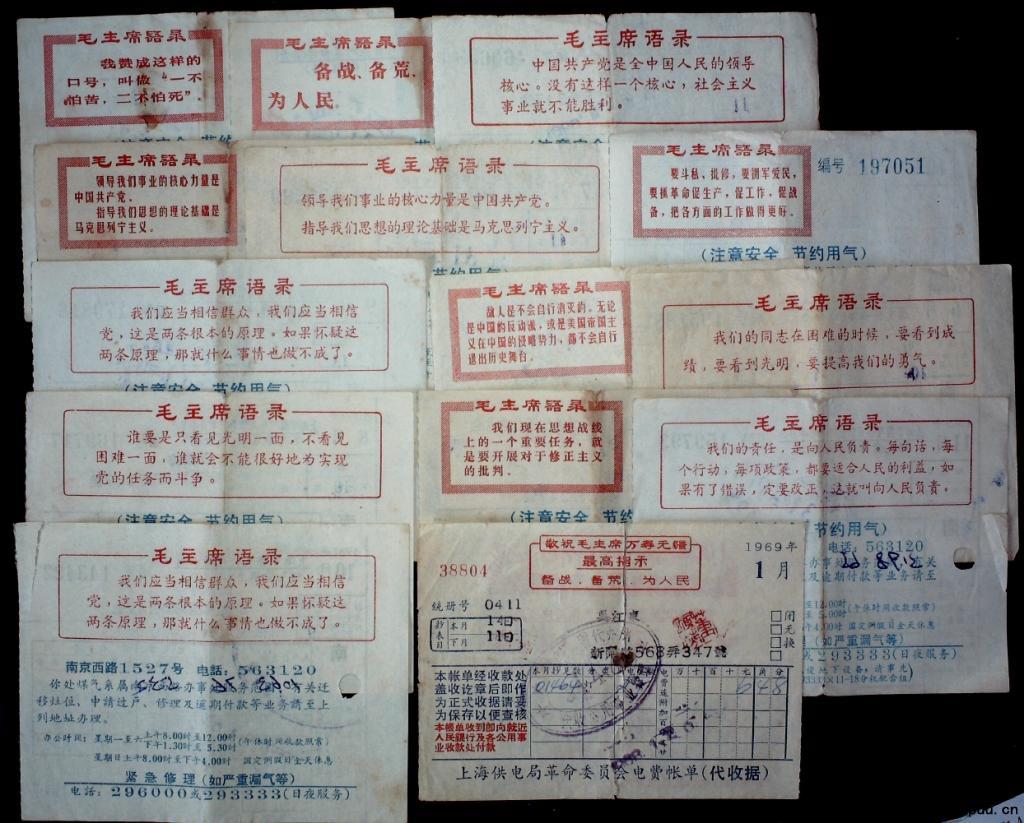 毛主席语录
我赞成这样的
口号，叫做“一不
怕苦，二不怕死”。
毛主席语录
备战、备荒、
为人民。
毛主席语录
中国共产党是全中国人民的领导
核心。没有这样一个核心，社会主义
事业就不能胜利。
毛主席语录
领导我们事业的核心力量是
中国共产党。
指导我们思想的理论基础是
马克思列宁主义。
毛主席语录
领导我们事业的核心力量是中国共产党。
指导我们思想的理论基础是马克思列宁主义。
毛主席语录
要斗私、批修，要拥军爱民，
要抓革命促生产，促工作，促战
备，把各方面的工作做得更好。
编号 197051
(注意安全 节约用气)
毛主席语录
我们应当相信群众，我们应当相信
党，这是两条根本的原理。如果怀疑这
两条原理，那就什么事情也做不成了。
(注意安全 节约用气)
毛主席语录
敌人是不会自行消灭的。无论
是中国的反动派，或是美国帝国主
义在中国的侵略势力，都不会自行
退出历史舞台。
毛主席语录
我们的同志在困难的时候，要看到成
绩，要看到光明，要提高我们的勇气。
毛主席语录
谁要是只看见光明一面，不看见
困难一面，谁就会不能很好地为实现
党的任务而斗争。
(注意安全 节约用气)
毛主席语录
我们现在思想战线
上的一个重要任务，就
是要开展对于修正主义
的批判。
(注意安全 节约
毛主席语录
我们的责任，是向人民负责。每句话，每
个行动，每项政策，都要适合人民的利益，如
果有了错误，定要改正，这就叫向人民负责。
节约用气)
电话：563120
毛主席语录
我们应当相信群众，我们应当相信
党，这是两条根本的原理。如果怀疑这
两条原理，那就什么事情也做不成了。
南京西路1527号 电话：563120
移灶位、申請过户、修理及逾期付款等业务請至上
列地址办理。
办公时间：星期一至六上午8.00时至12.00时
下午1.30时至5.30时
(午休时间收款照常)
星期日上午8.00时至下午4.00时 国定例假日全天休息
紧急修理(如严重漏气等)
电话：296000或293333(日夜服务)
敬祝毛主席万寿无疆
最高指示
备战、备荒、为人民
38804
1969年
1月
统册号 0411
抄表 本月 14日
下月 11日
568弄347號
闭
无
换
本帐单经收款处
盖收讫章后即作
为正式收据請妥
为保存以便查核
本帳单收到即向就近
人民銀行及各公用事
业收款处付款
上海供电局革命委员会电费帐单(代收据)
及逾期付款等业务請至
(午休时间收款照常)
国定例假日全天休息
(如严重漏气等)
293333(日夜服务)